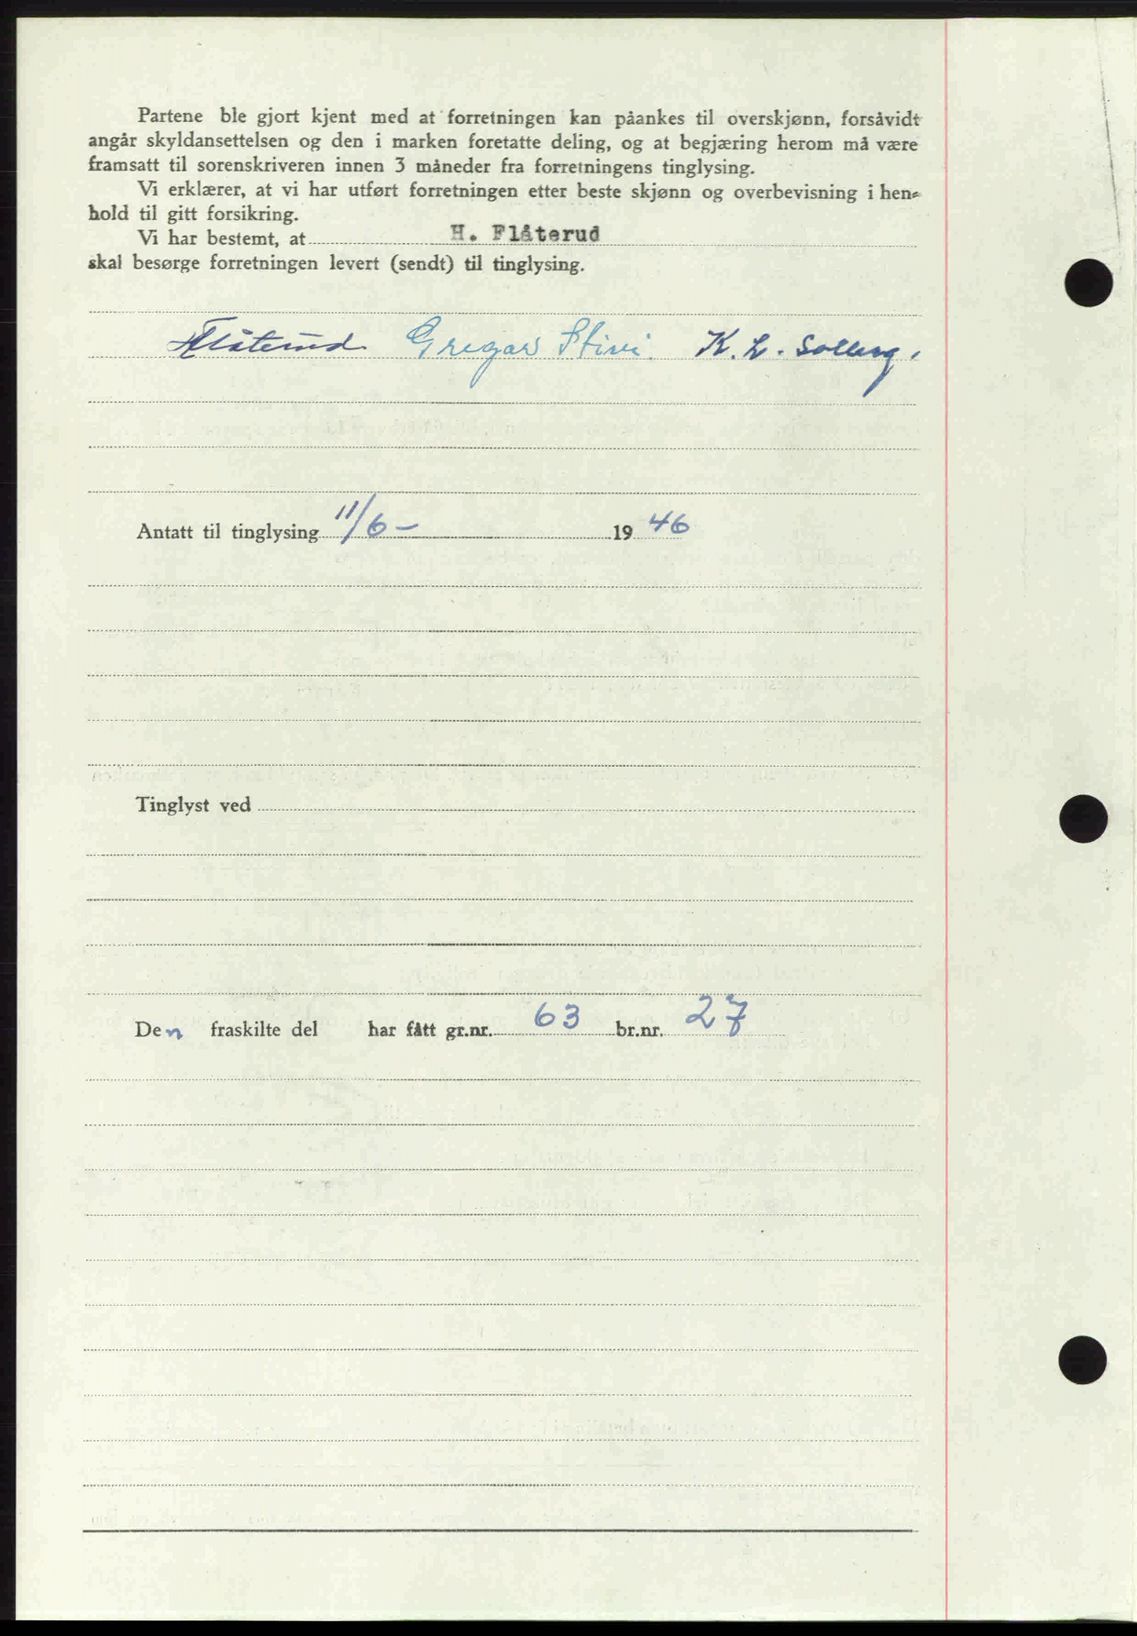 Partene ble gjort kjent med at forretningen kan påankes til overskjønn, forsåvidt
angår skyldansettelsen og den i marken foretatte deling, og at begjæring herom må være
framsatt til sorenskriveren innen 3 måneder fra forretningens tinglysing.
Vi erklærer, at vi har utført forretningen etter beste skjønn og overbevisning i hen-
hold til gitt forsikring.
Vi har bestemt, at H. Flåterud
skal besørge forretningen levert (sendt) til tinglysing.
HFlåterud Gregar Stivi. K. L. Solberg.
Antatt til tinglysing 11/6- 1946
Tinglyst ved
Den fraskilte del har fått gr.nr. 63 br.nr. 27